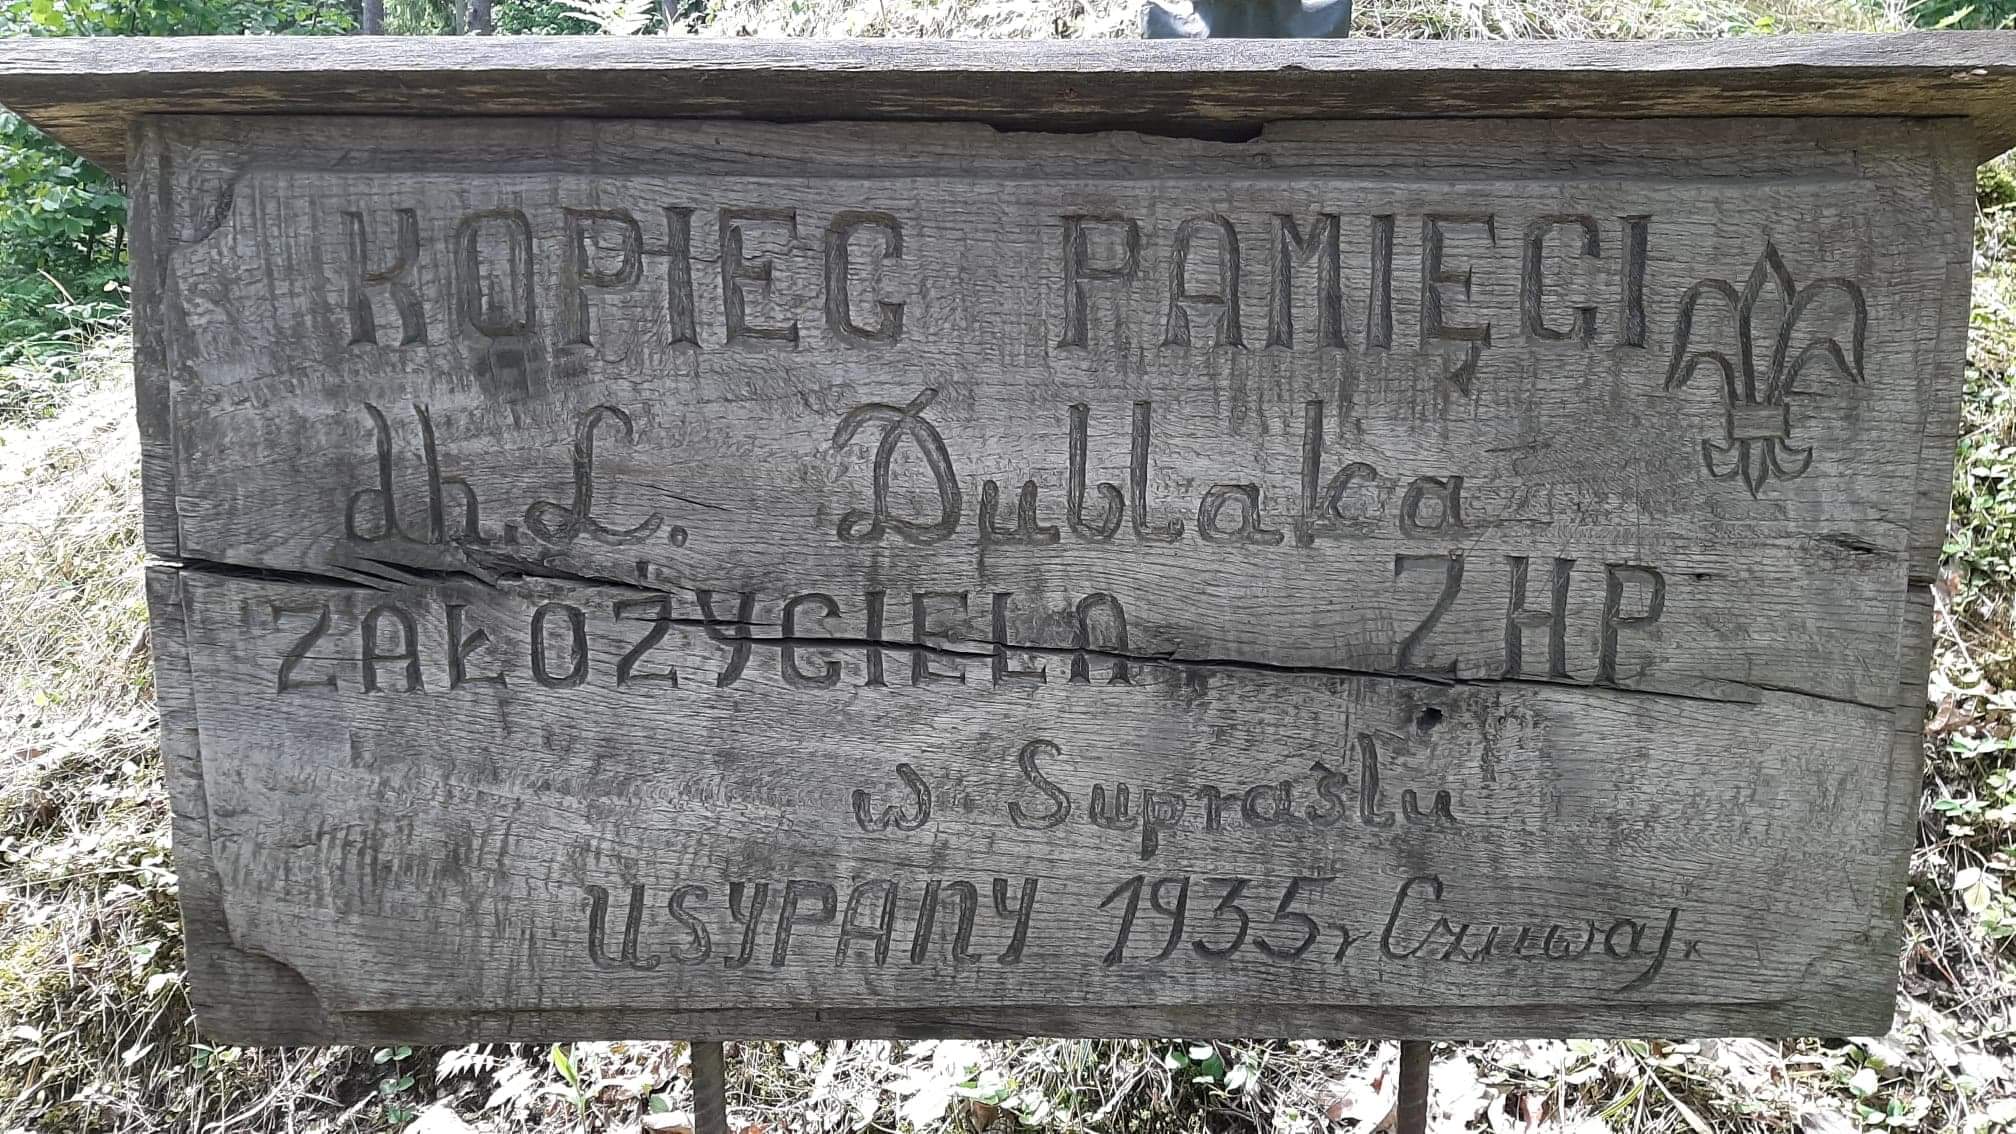 KOPIEC PAMIĘCI
dh. L. Dublaka
ZAŁOŻYCIELA ZHP
w Supraślu
USYPANY 1935r Czuwaj